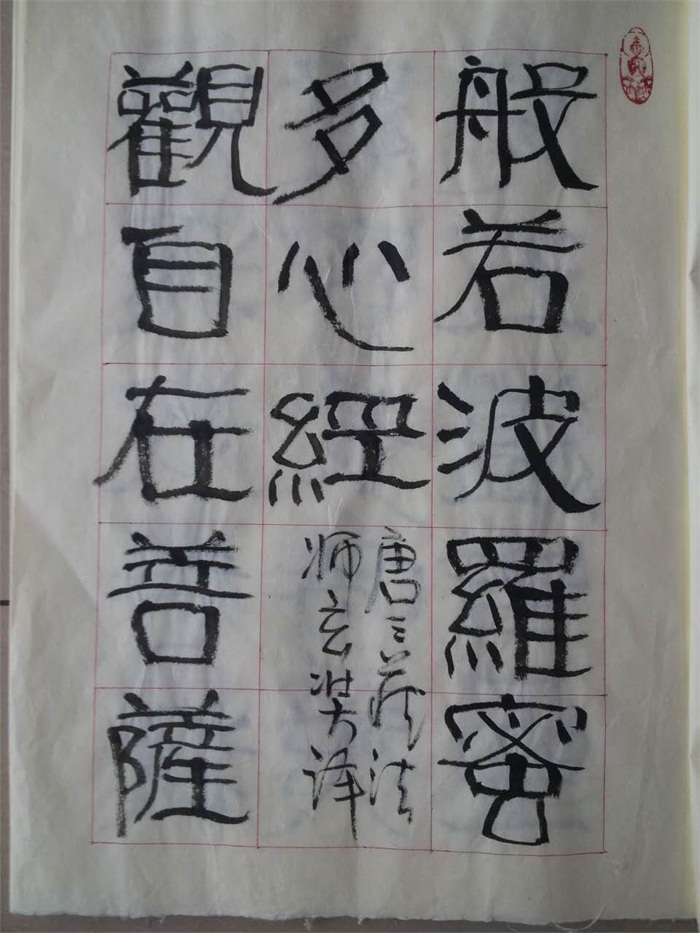 般若波羅蜜
多心經
唐三藏法
师玄奘译
觀自在菩薩